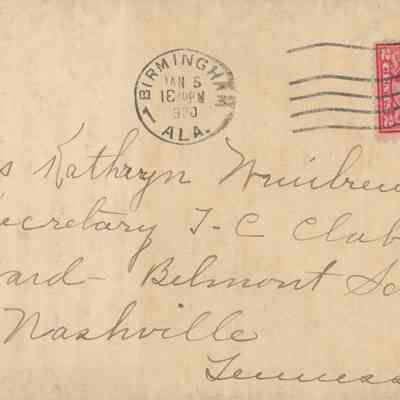 BIRMINGHAM
JAN 5
1920
ALA.
s Kathryn
ecretary T-C Club
ard - Belmont Sc
Nashville
Tenness